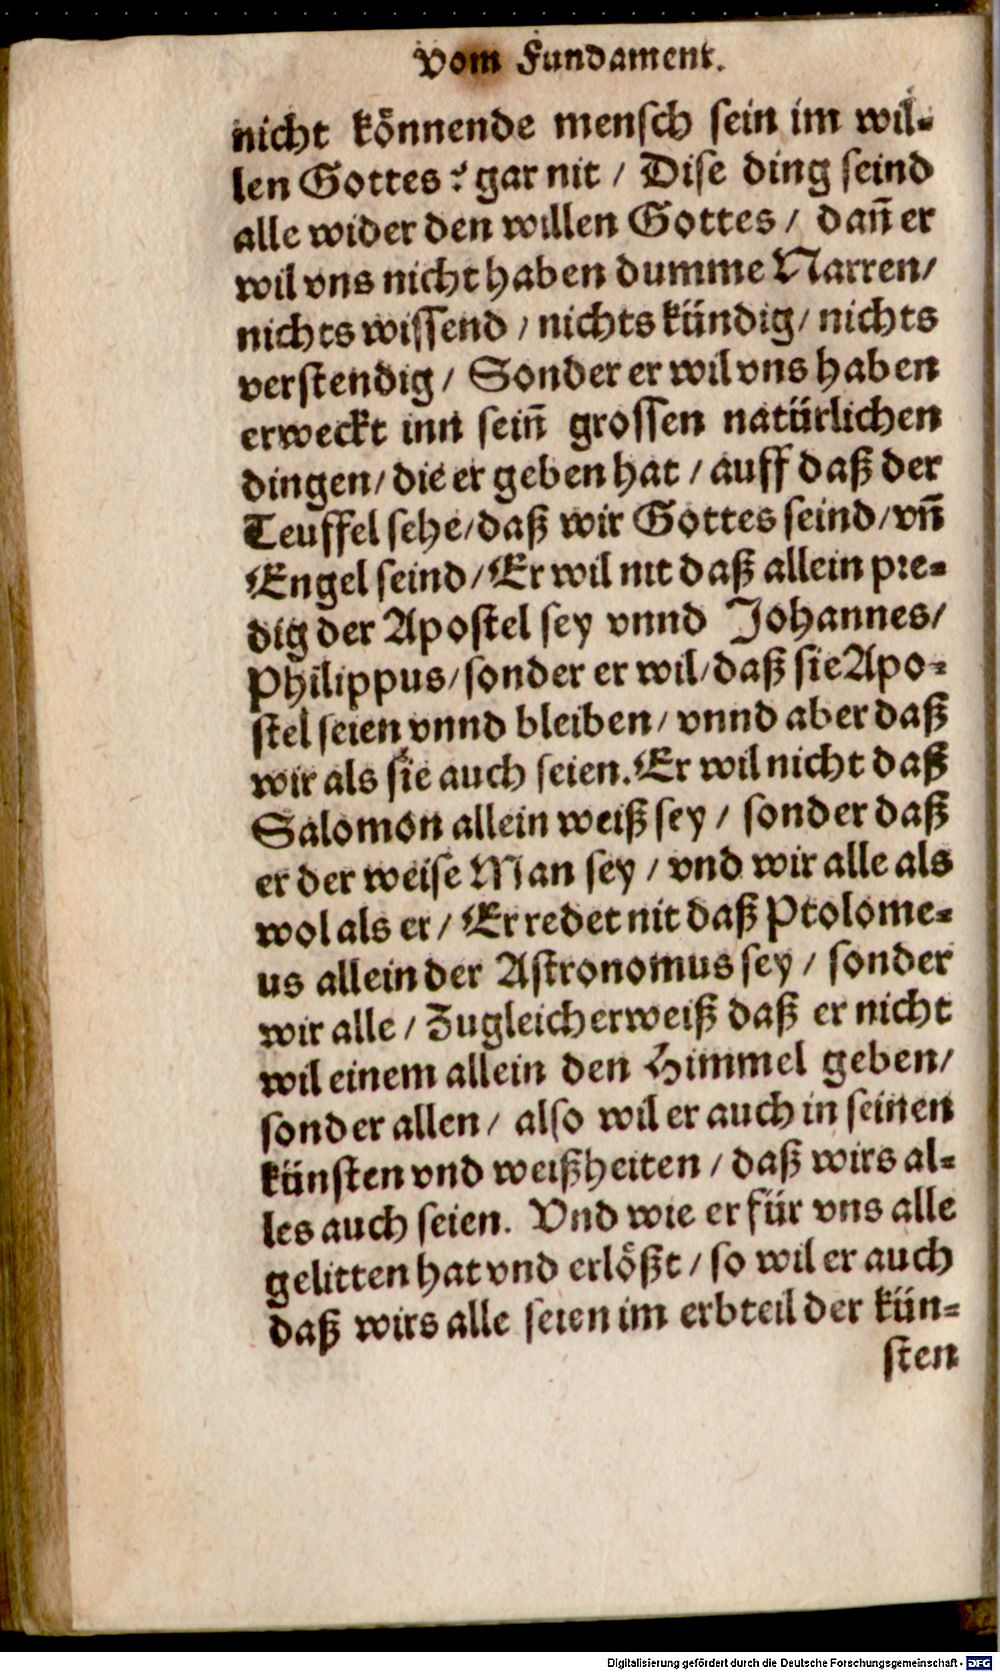 Vom Fundament.
nicht könnende mensch sein im wil⸗
len Gottes? gar nit / Dise ding seind
alle wider den willen Gottes / dañ er
wil vns nicht haben dumme Narren/
nichts wissend / nichts kündig / nichts
verstendig / Sonder er wil vns haben
erweckt inn seiñ grossen natürlichen
dingen / die er geben hat / auff daß der
Teuffel sehe / daß wir Gottes seind / vñ
Engel seind / Er wil nit daß allein pre⸗
dig der Apostel sey vnnd Johannes/
Philippus / sonder er wil / daß sie Apo⸗
stel seien vnnd bleiben / vnnd aber daß
wir als sie auch seien. Er wil nicht daß
Salomon allein weiß sey / sonder daß
er der weise Man sey / vnd wir alle als
wol als er / Er redet nit daß Ptolome⸗
us allein der Astronomus sey / sonder
wir alle / Zugleich er weiß daß er nicht
wil einem allein den Himmel geben/
sonder allen / also wil er auch in seinen
künsten vnd weißheiten / daß wirs al⸗
les auch seien. Vnd wie er für vns alle
gelitten hat vnd erlößt / so wil er auch
daß wirs alle seien im erbteil der kün⸗
sten
Digitalisierung gefördert durch die Deutsche Forschungsgemeinschaft - DFG